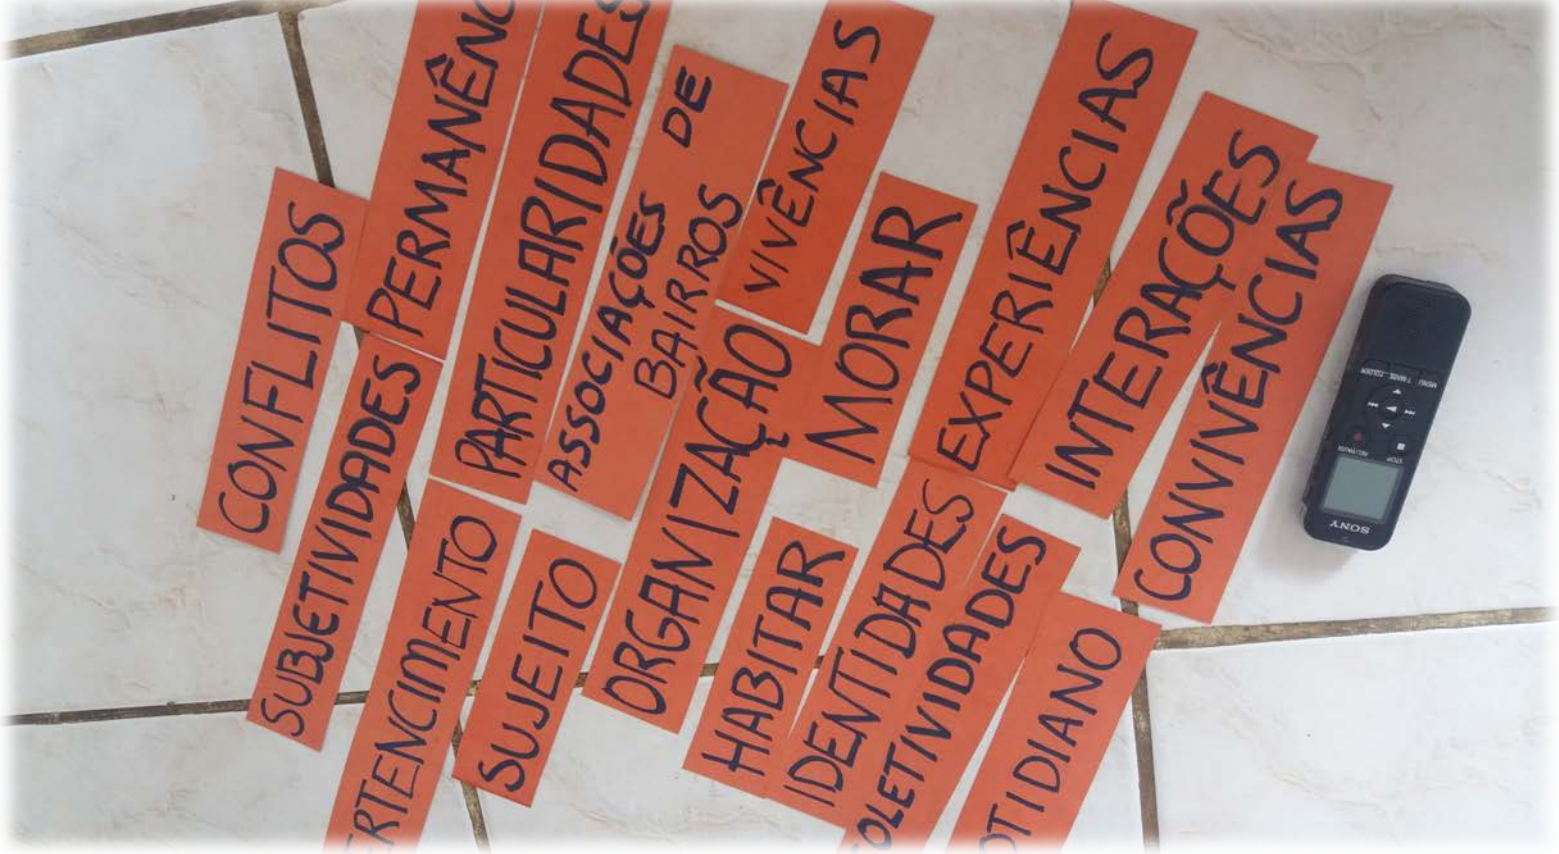 CONFLITOS
PERMANÊNC
PARTICULARIDADES
ASSOCIAÇÕES DE
BAIRROS
VIVÊNCIAS
MORAR
EXPERIÊNCIAS
INTERAÇÕES
CONVIVÊNCIAS
SUBJETIVIDADES
ERTENCIMENTO
SUJEITO
ORGANIZAÇÃO
HABITAR
IDENTIDADES
OLETIVIDADES
OTIDIANO
MENU
T-MARK
FOLDER
STOP
REC/PAUSE
SONY